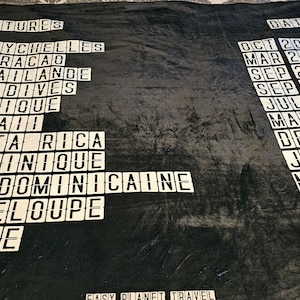 TURES DA
YCHELLES OCT 20
RACAO MAR 2
AILANDE SEP
DIVES SEP
IQUE JUI
AII MA
A RICA D
INIQUE J
DOMINICAINE
ELOUPE
E
EASY PLANET TRAVEL